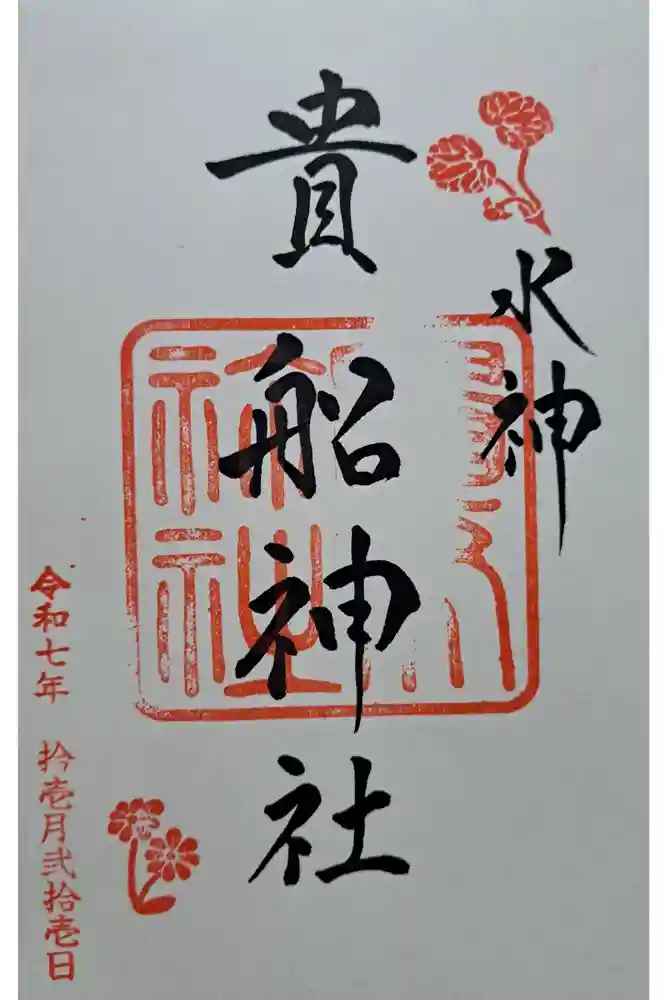 水神
貴船神社
令和七年 拾壱月弐拾壱日